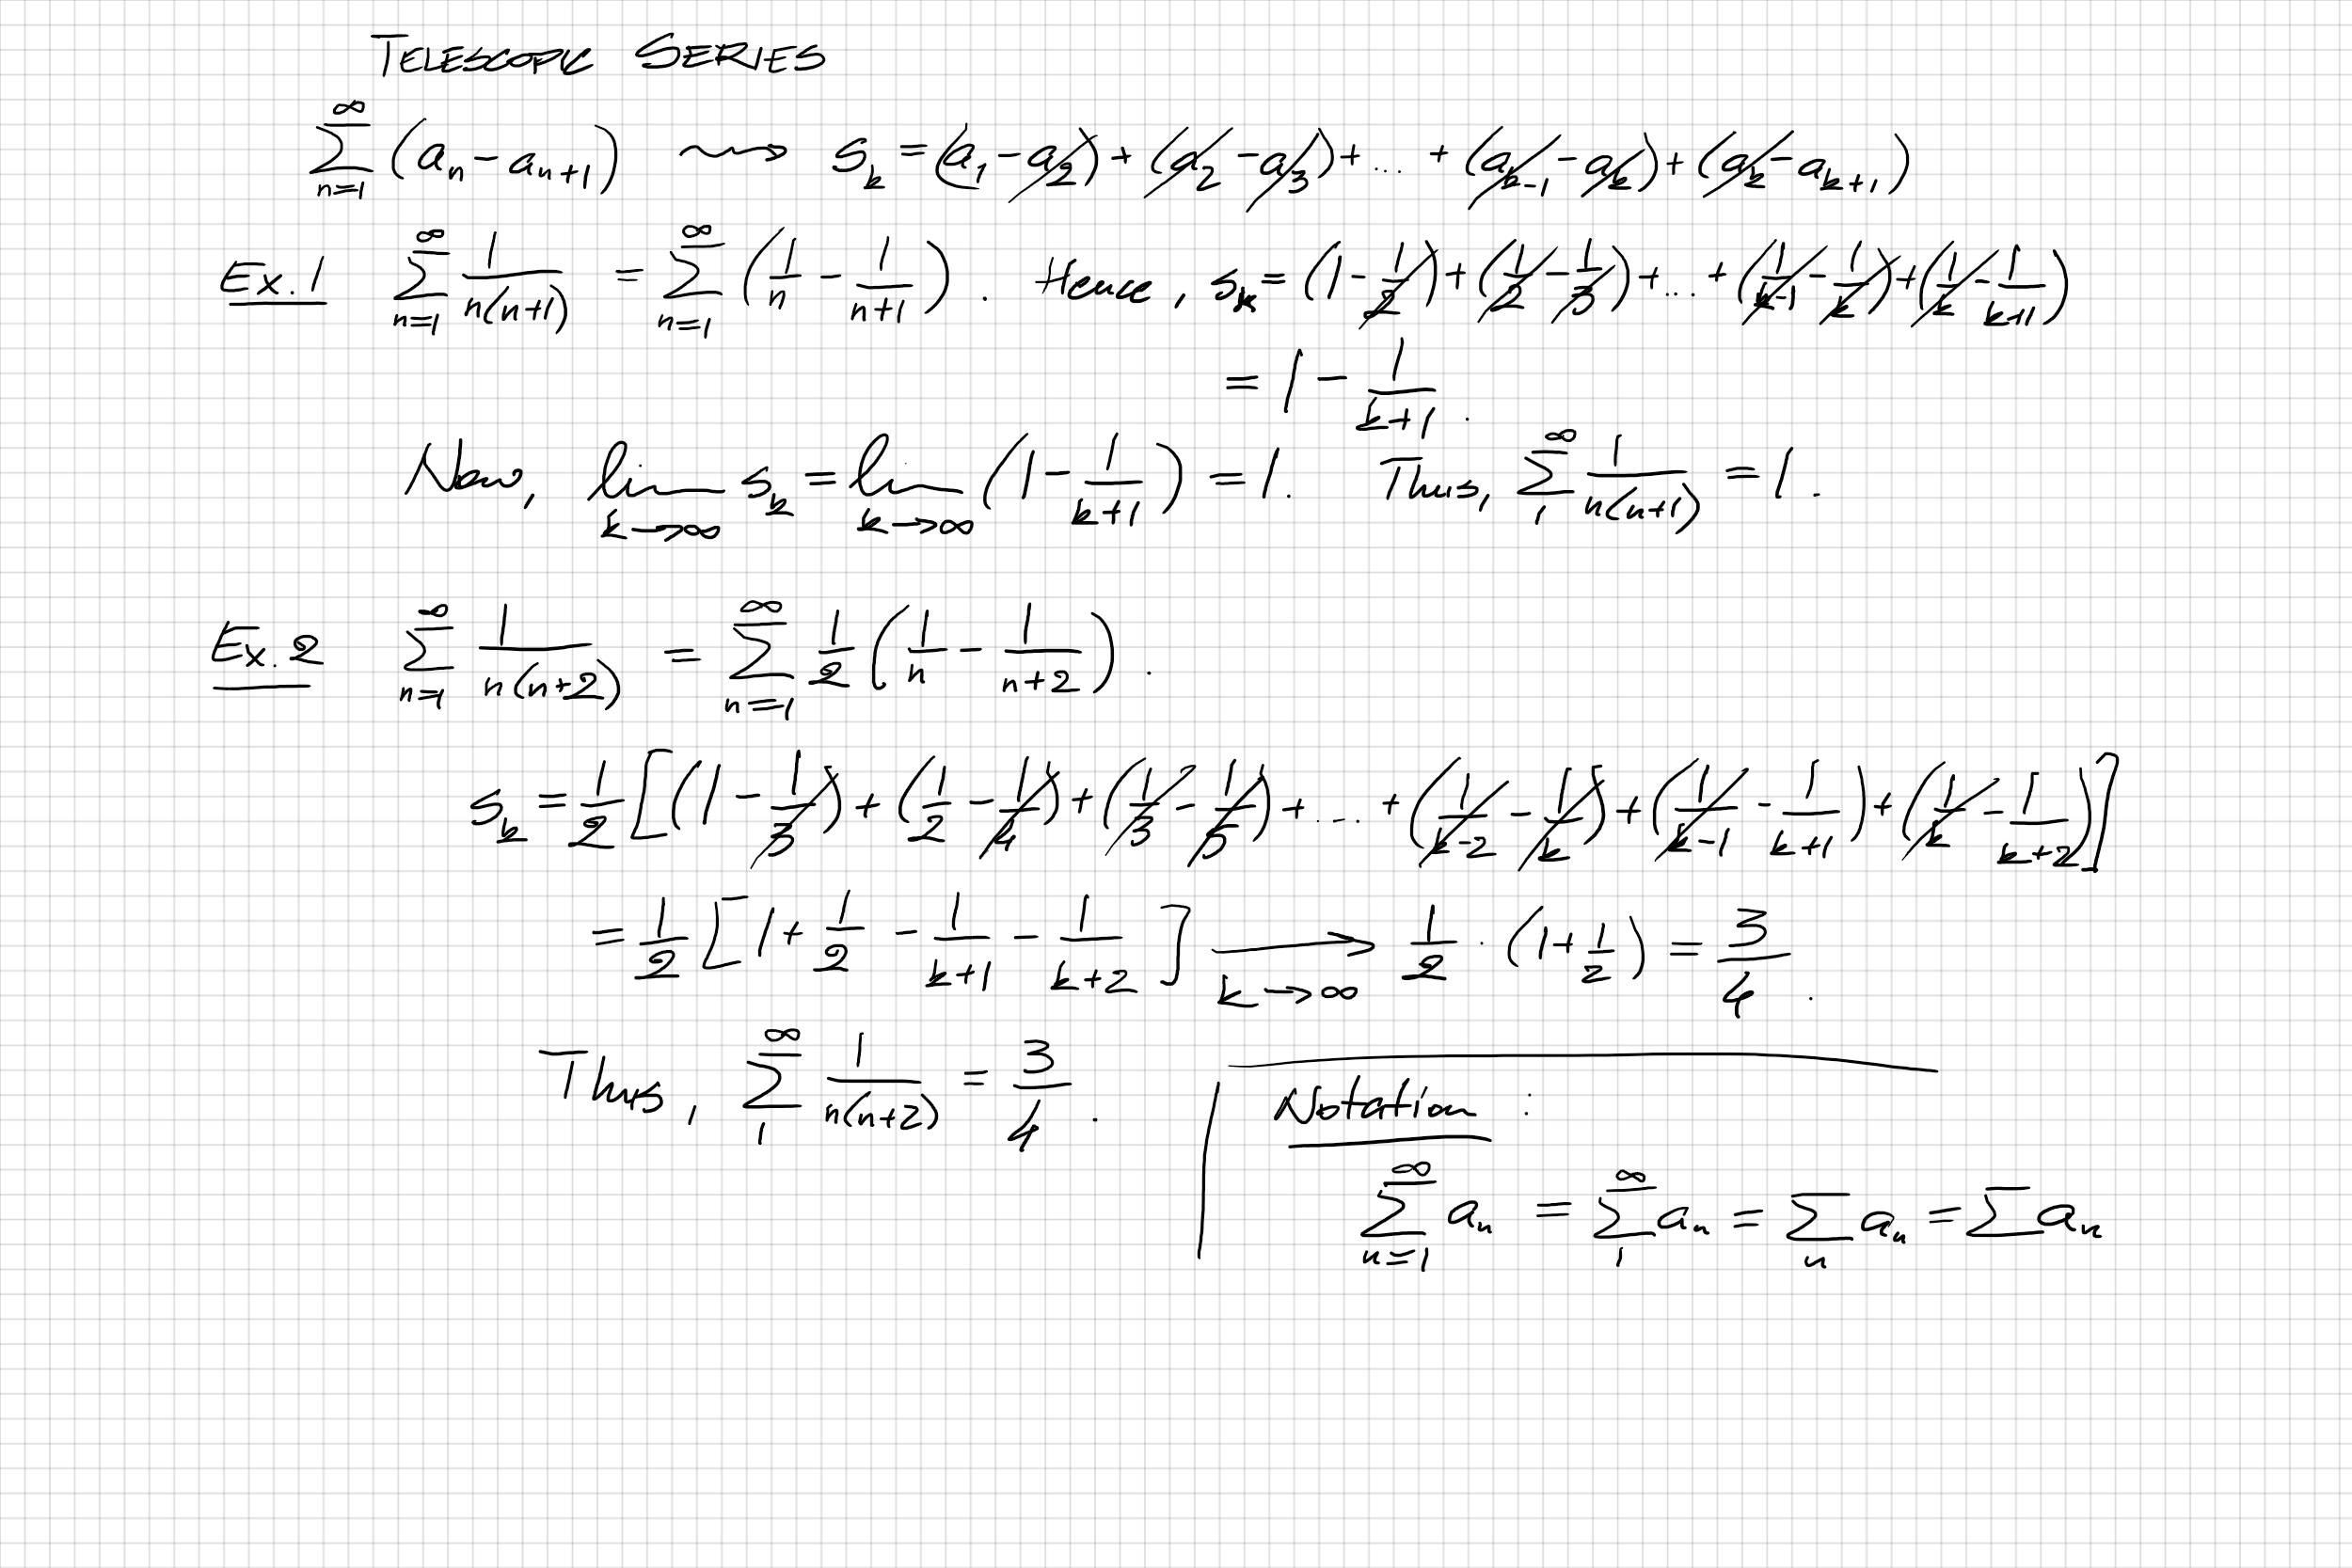 TELESCOPIC SERIES
∑_{n=1}^{∞} (a_n - a_{n+1}) ⇝ s_k = (a_1 - a_2) + (a_2 - a_3) + ... + (a_{k-1} - a_k) + (a_k - a_{k+1})
Ex. 1 ∑_{n=1}^{∞} 1/(n(n+1)) = ∑_{n=1}^{∞} (1/n - 1/(n+1)). Hence, s_k = (1 - 1/2) + (1/2 - 1/3) + ... + (1/(k-1) - 1/k) + (1/k - 1/(k+1))
= 1 - 1/(k+1).
Now, lim_{k→∞} s_k = lim_{k→∞} (1 - 1/(k+1)) = 1. Thus, ∑_{1}^{∞} 1/(n(n+1)) = 1.
Ex. 2 ∑_{n=1}^{∞} 1/(n(n+2)) = ∑_{n=1}^{∞} 1/2 (1/n - 1/(n+2)).
s_k = 1/2 [(1 - 1/3) + (1/2 - 1/4) + (1/3 - 1/5) + .... + (1/(k-2) - 1/k) + (1/(k-1) - 1/(k+1)) + (1/k - 1/(k+2))]
= 1/2 [1 + 1/2 - 1/(k+1) - 1/(k+2)] →_{k→∞} 1/2 · (1 + 1/2) = 3/4.
Thus, ∑_{1}^{∞} 1/(n(n+2)) = 3/4.
Notation :
∑_{n=1}^{∞} a_n = ∑_{1}^{∞} a_n = ∑_{n} a_n = ∑ a_n